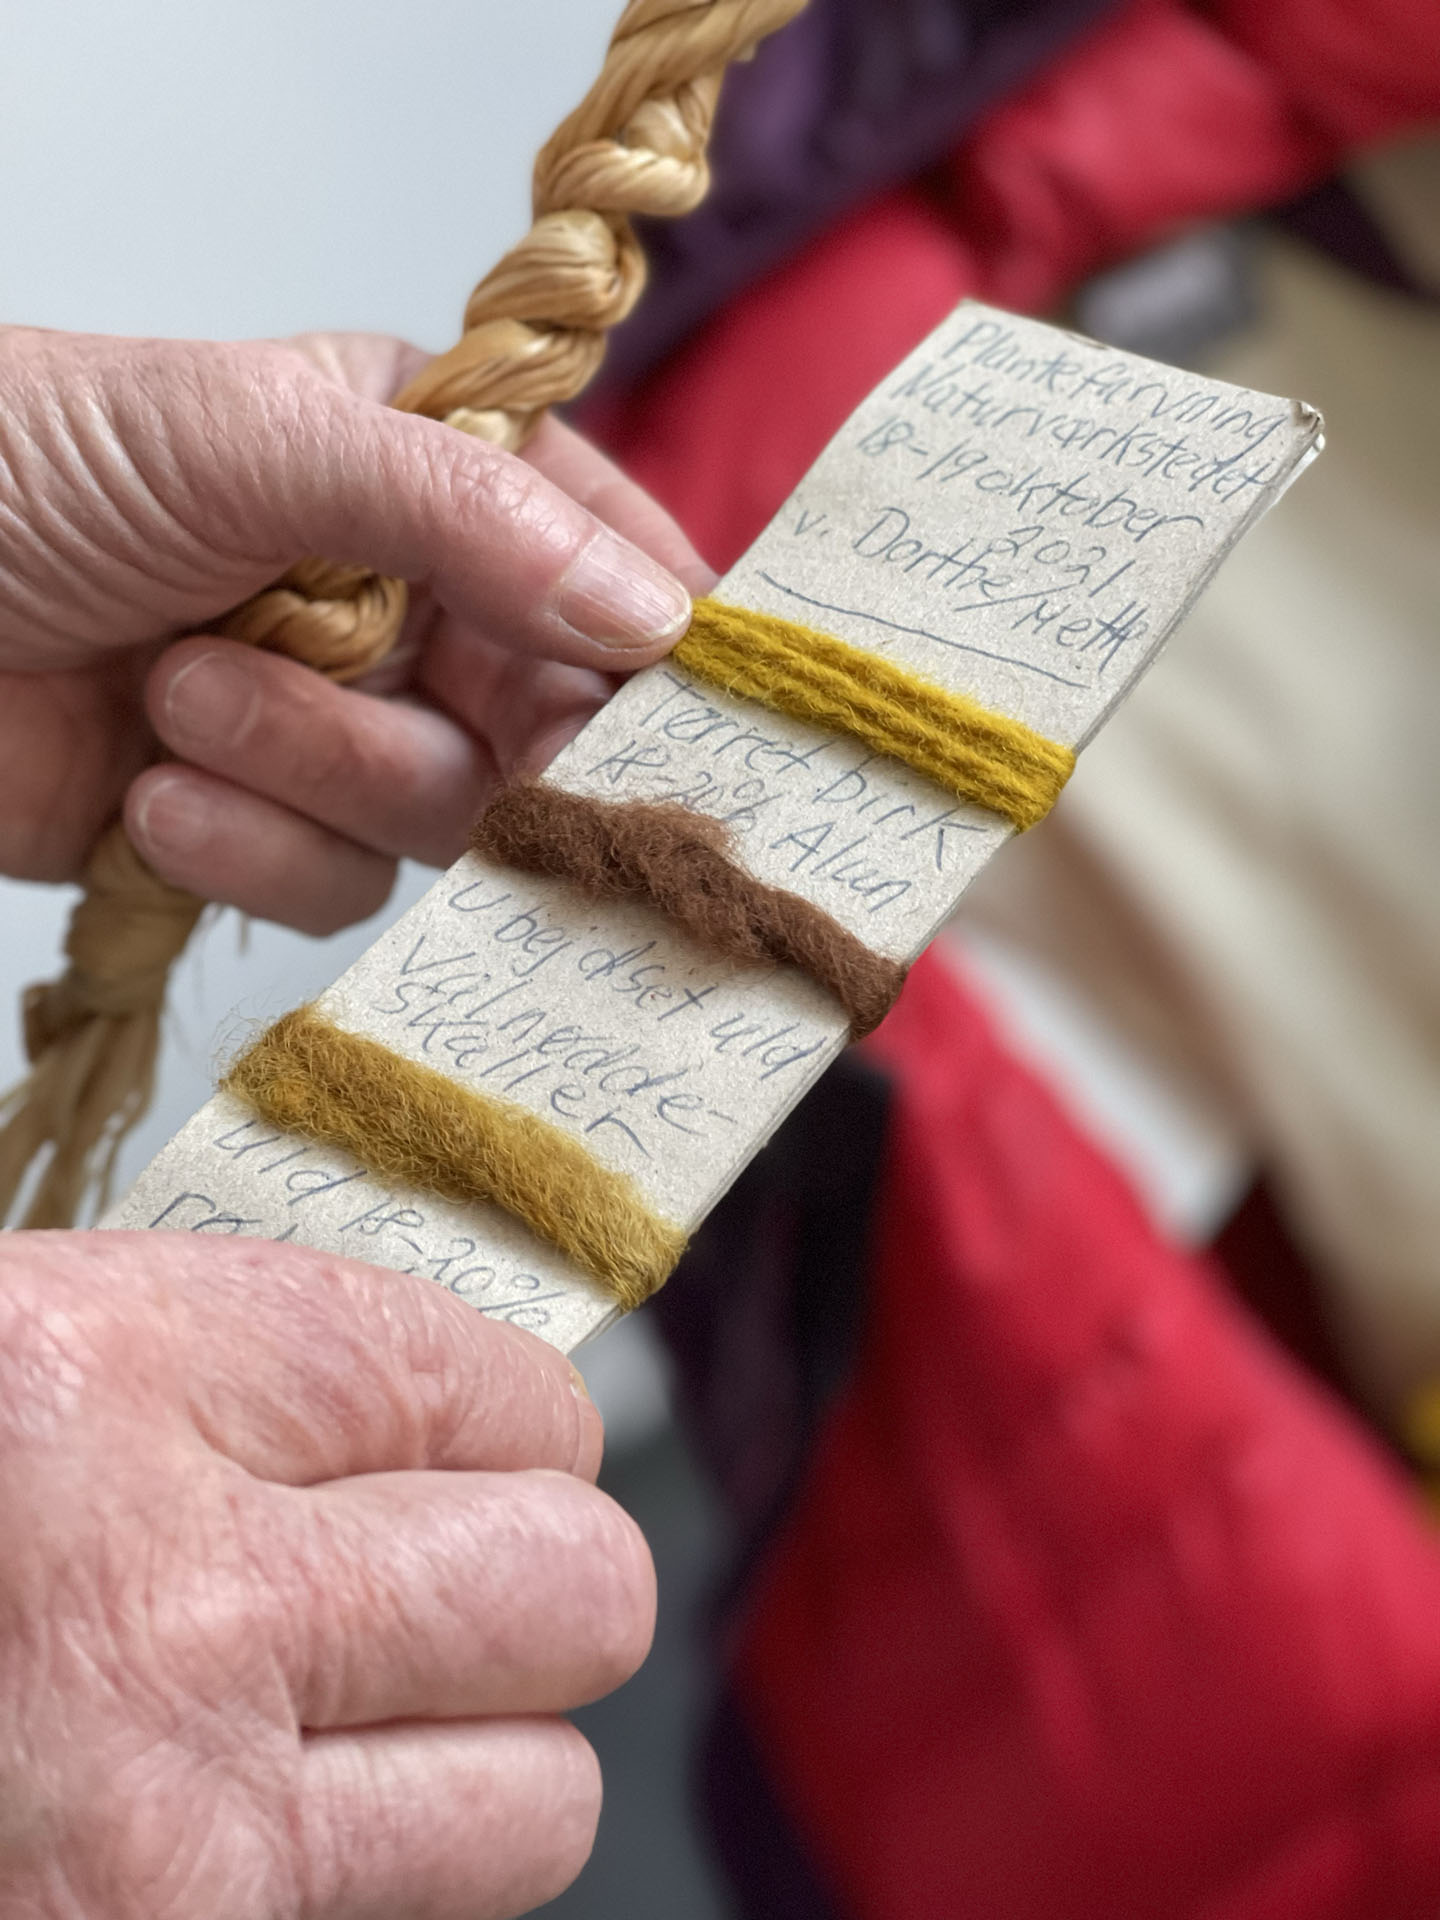 Plantefarvning
Naturværkstedet
18-19 oktober
2021
v. Dorthe/Meth
Tørret birk
18-20% Alun
Ubejdset uld
Valnødde-
skaller
uld 18-20%